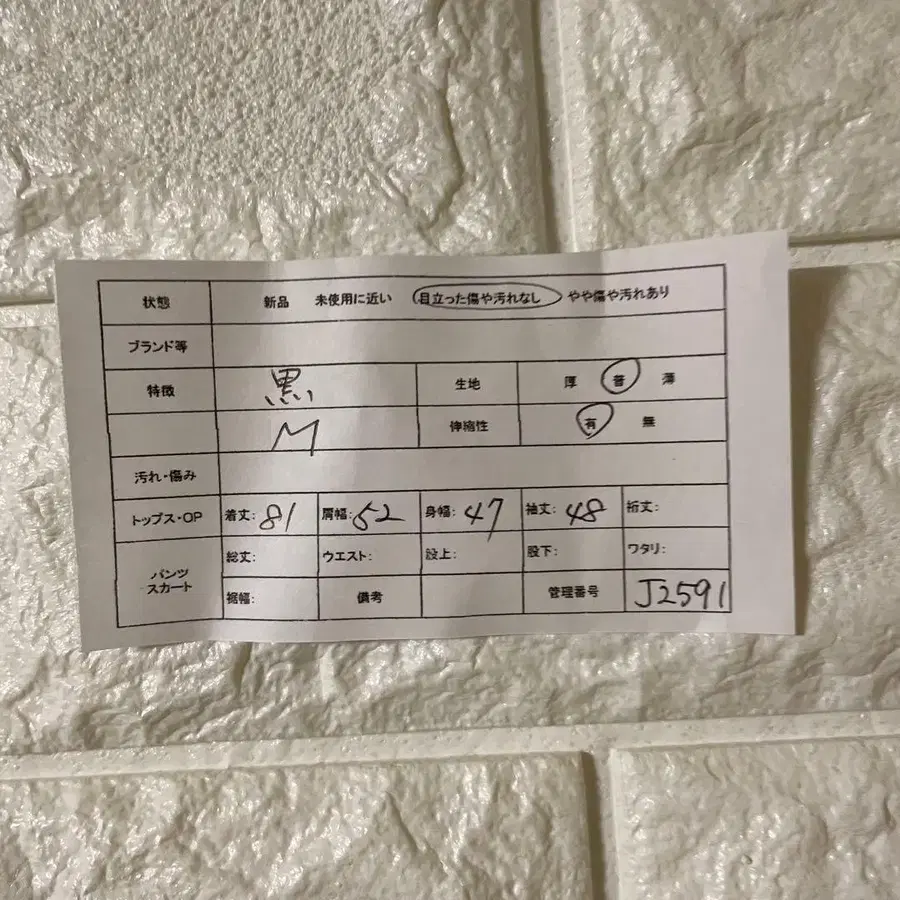 状態 新品 未使用に近い 目立った傷や汚れなし やや傷や汚れあり
ブランド等
特徴 黒 生地 厚 普 薄
M 伸縮性 有 無
汚れ・傷み
トップス・OP 着丈:81 肩幅:52 身幅:47 袖丈:48 裄丈:
パンツ
スカート
総丈: ウエスト: 股上: 股下: ワタリ:
裾幅: 備考 管理番号 J2591